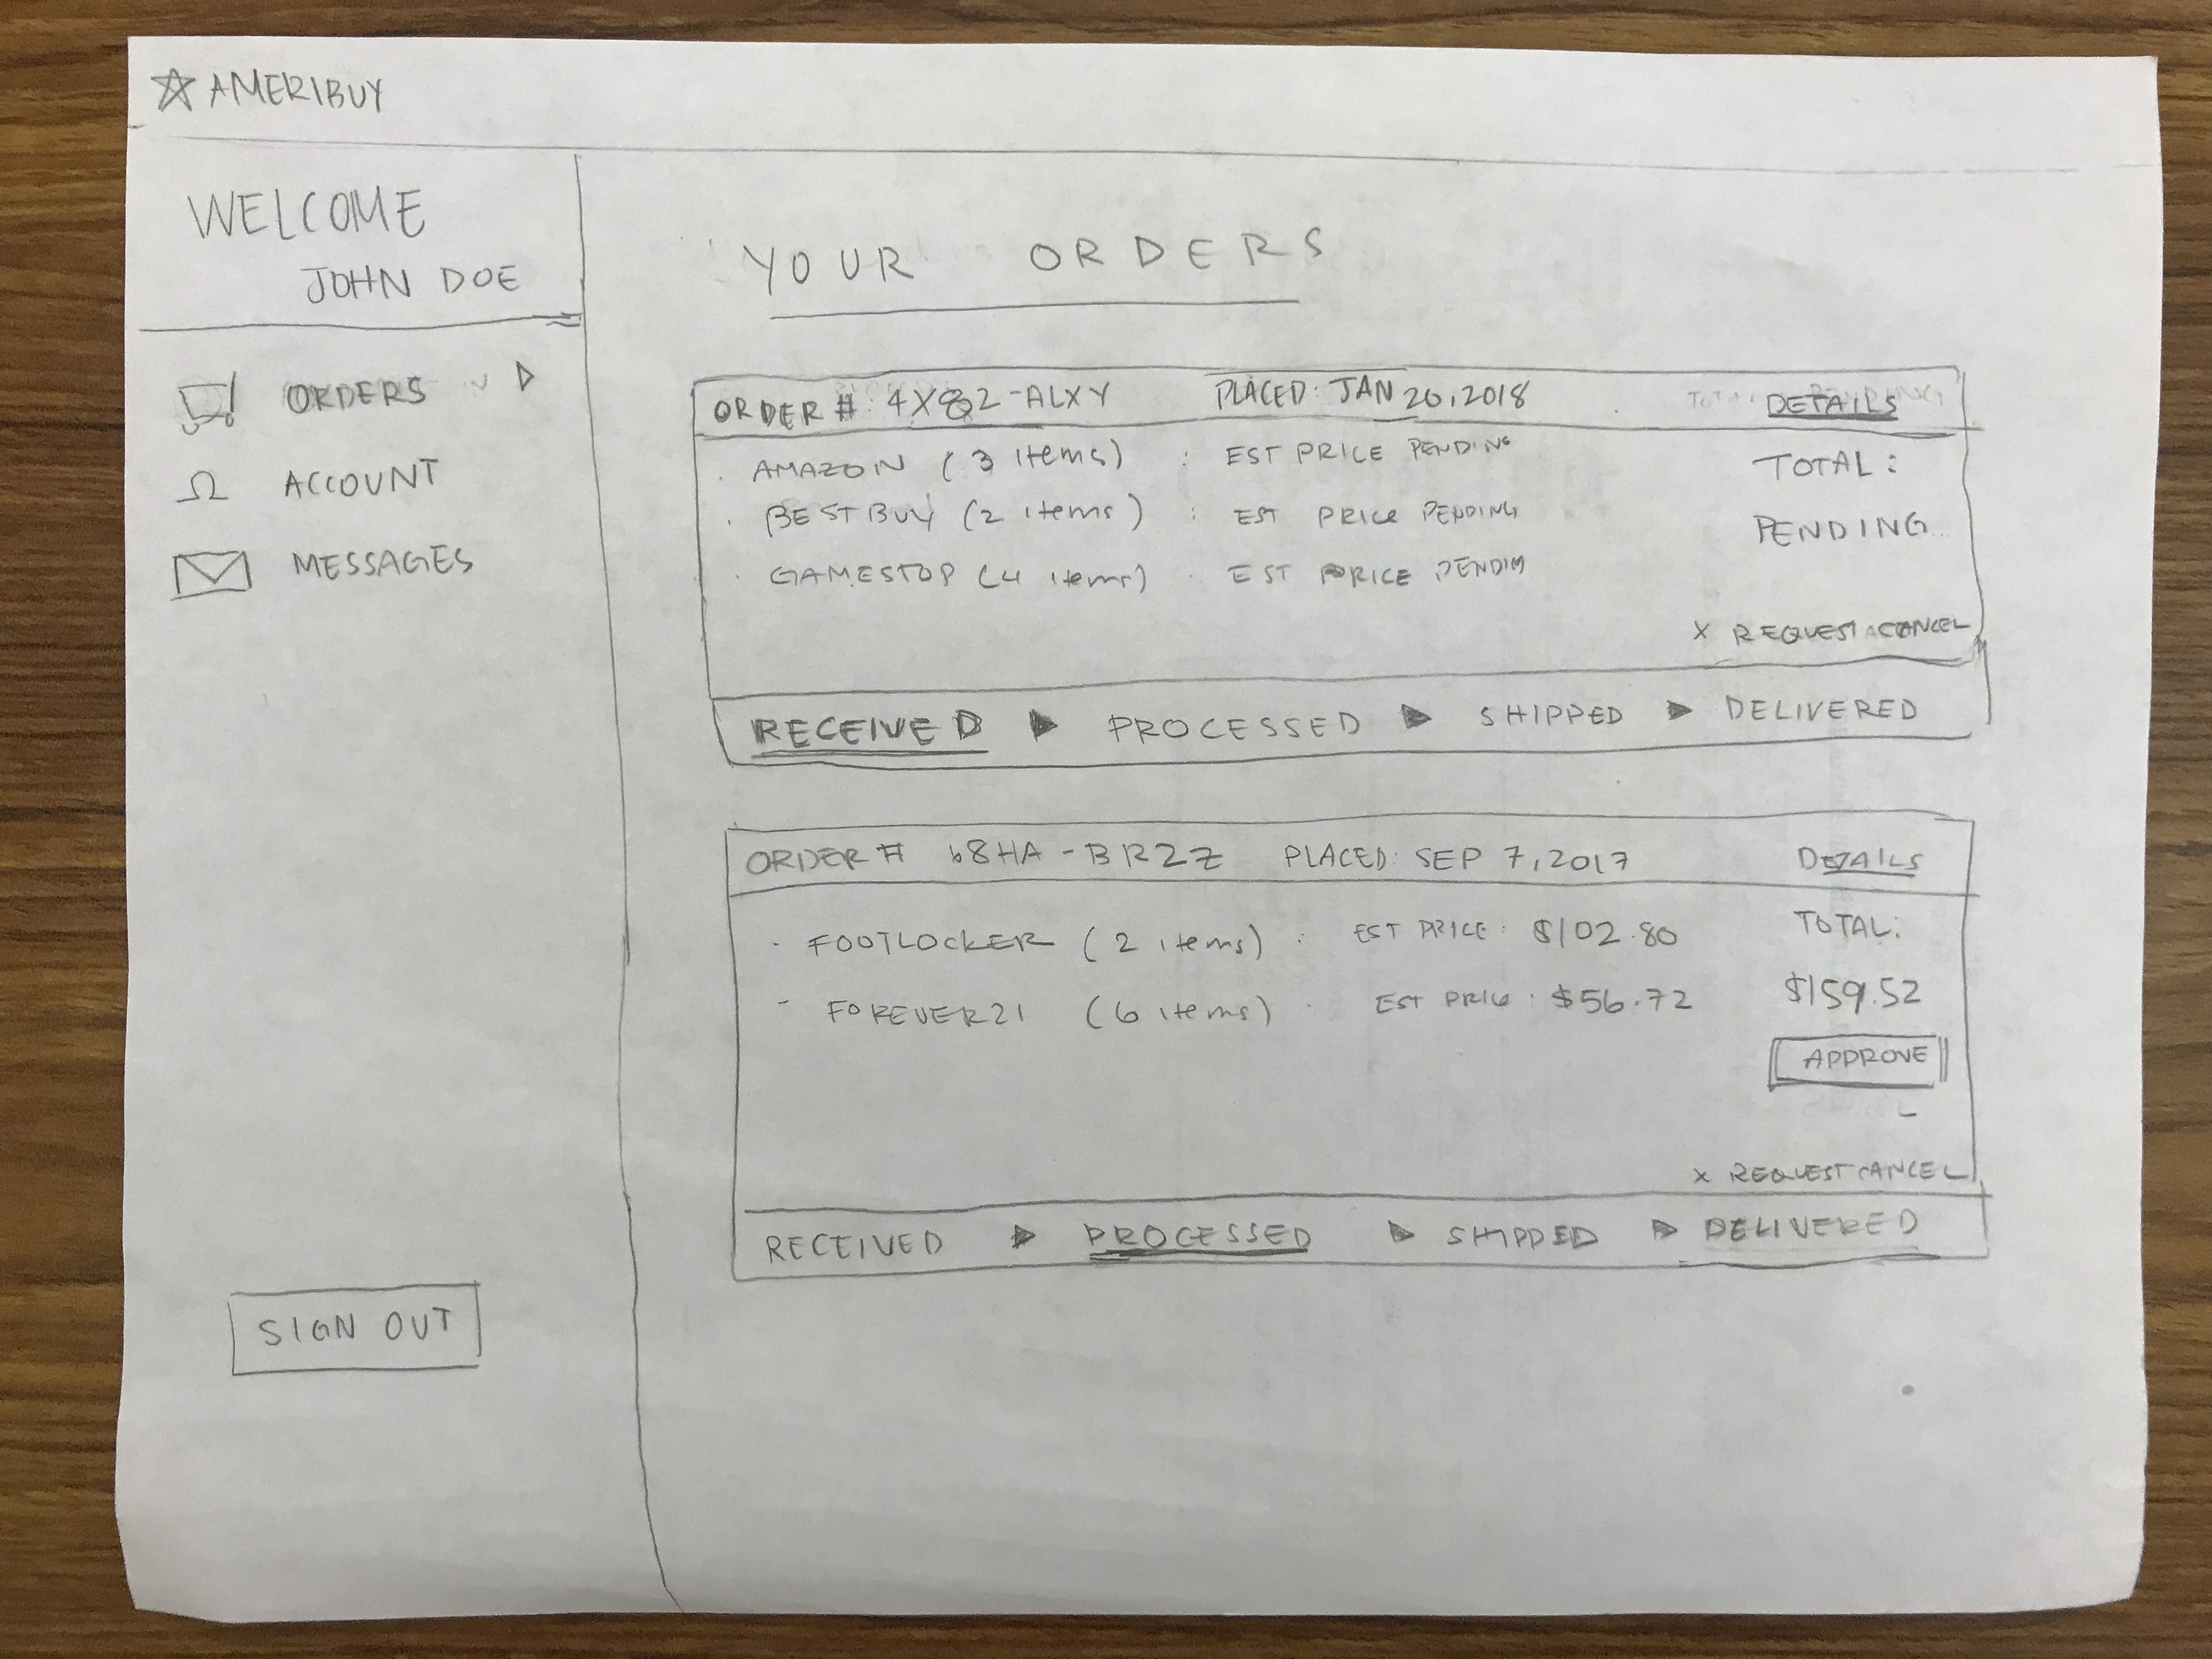 AMERIBUY
WELCOME
JOHN DOE
ORDERS
ACCOUNT
MESSAGES
SIGN OUT
YOUR ORDERS
ORDER #: 4X82-ALXY PLACED: JAN 20, 2018 DETAILS
· AMAZON (3 items) : EST PRICE PENDING
· BESTBUY (2 items) : EST PRICE PENDING
· GAMESTOP (4 items) : EST PRICE PENDIN
TOTAL:
PENDING
X REQUEST CANCEL
RECEIVED ▶ PROCESSED ▶ SHIPPED ▶ DELIVERED
ORDER # 68HA-BR2Z PLACED: SEP 7, 2017 DETAILS
· FOOTLOCKER (2 items) : EST PRICE: $102.80
- FOREVER21 (6 items) · EST PRICE: $56.72
TOTAL:
$159.52
APPROVE
X REQUEST CANCEL
RECEIVED ▶ PROCESSED ▶ SHIPPED ▶ DELIVERED